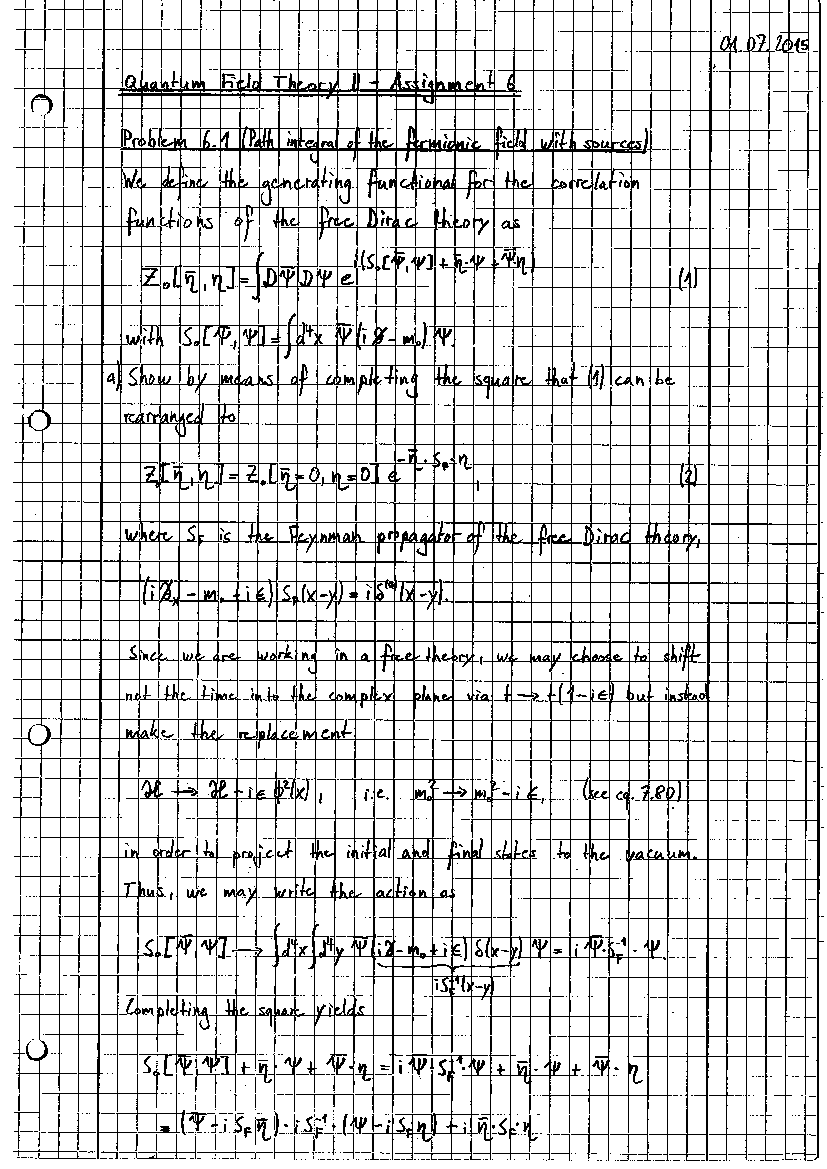 01.07.2015
Quantum Field Theory II – Assignment 6
Problem 6.1 (Path integral of the fermionic field with sources)
We define the generating functional for the correlation
functions of the free Dirac theory as
Z₀[η̄, η] = ∫ DΨ̄ DΨ e^{i(S₀[Ψ̄, Ψ] + η̄·Ψ + Ψ̄·η)} (1)
with S₀[Ψ̄, Ψ] = ∫ d⁴x Ψ̄ (i∂̸ - m₀) Ψ.
a) Show by means of completing the square that (1) can be
rearranged to
Z₀[η̄, η] = Z₀[η̄=0, η=0] e^{-η̄·S_F·η}, (2)
where S_F is the Feynman propagator of the free Dirac theory,
(i∂̸ₓ - m₀ + iϵ) S_F(x-y) = iδ⁽⁴⁾(x-y).
Since we are working in a free theory, we may choose to shift
not the time into the complex plane via t → t(1-iϵ) but instead
make the replacement
ℋ → ℋ - iϵ ϕ²(x), i.e. m₀² → m₀² - iϵ, (see eq. 7.80)
in order to project the initial and final states to the vacuum.
Thus, we may write the action as
S₀[Ψ̄, Ψ] → ∫d⁴x ∫d⁴y Ψ̄ (i∂̸ - m₀ + iϵ) δ(x-y) Ψ = i Ψ̄·S_F⁻¹·Ψ.
iS_F⁻¹(x-y)
Completing the square yields
S₀[Ψ̄, Ψ] + η̄·Ψ + Ψ̄·η = i Ψ̄·S_F⁻¹·Ψ + η̄·Ψ + Ψ̄·η
= (Ψ̄ - i S_F η̄)·i S_F⁻¹·(Ψ - i S_F η) + i η̄·S_F·η